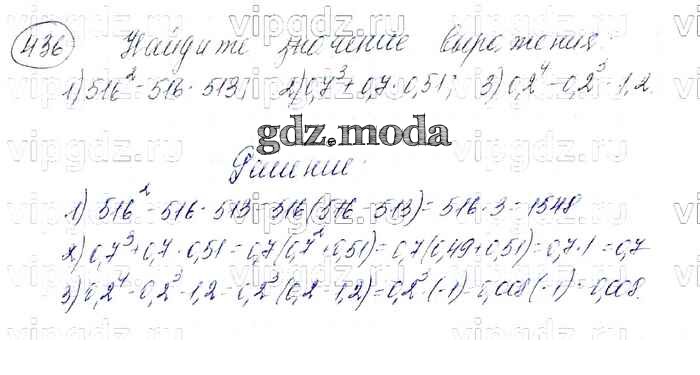 vipgdz.ru vipgdz.ru vipgdz.ru
436 Найдите значение выражения:
1) 516² - 516 · 513; 2) 0,7³ + 0,7 · 0,51; 3) 0,2⁴ - 0,2³ · 1,2.
gdz.moda
Решение:
1) 516² - 516 · 513 = 516 (516 - 513) = 516 · 3 = 1548
2) 0,7³ + 0,7 · 0,51 = 0,7 (0,7² + 0,51) = 0,7 (0,49 + 0,51) = 0,7 · 1 = 0,7
3) 0,2⁴ - 0,2³ · 1,2 = 0,2³ (0,2 - 1,2) = 0,2³ · (-1) = 0,008 (-1) = 0,008.